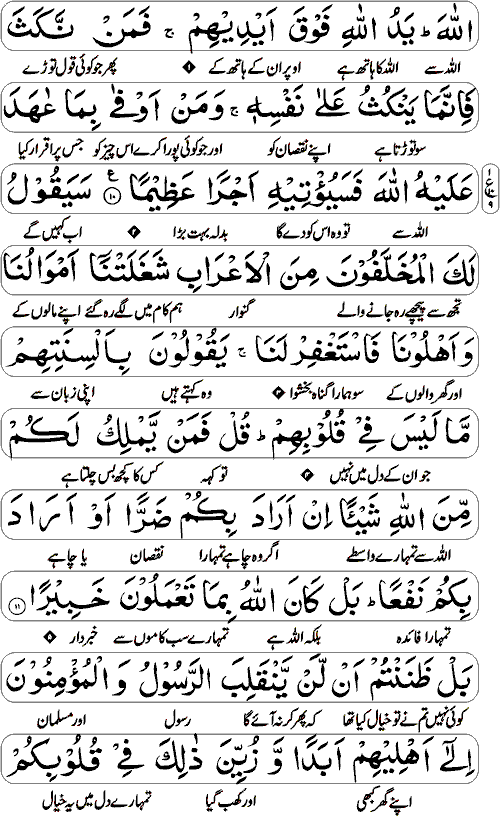 اللّٰهَ ؕ یَدُ اللّٰهِ فَوْقَ اَیْدِیْهِمْ ۚ فَمَنْ نَّكَثَ
اللہ سے اللہ کا ہاتھ ہے اوپر ان کے ہاتھ کے پھر جو کوئی قول توڑے
فَاِنَّمَا یَنْكُثُ عَلٰی نَفْسِهٖ ۚ وَمَنْ اَوْفٰی بِمَا عٰهَدَ
سو توڑتا ہے اپنے نقصان کو اور جو کوئی پورا کرے اس چیز کو جس پر اقرار کیا
عَلَیْهُ اللّٰهَ فَسَیُؤْتِیْهِ اَجْرًا عَظِیْمًا ۱۰ سَیَقُوْلُ
اللہ سے تو وہ اس کو دے گا بدلہ بہت بڑا اب کہیں گے
لَكَ الْمُخَلَّفُوْنَ مِنَ الْاَعْرَابِ شَغَلَتْنَاۤ اَمْوَالُنَا
تجھ سے پیچھے رہ جانے والے گنوار ہم کام میں لگے رہ گئے اپنے مالوں کے
وَاَهْلُوْنَا فَاسْتَغْفِرْ لَنَا ۚ یَقُوْلُوْنَ بِاَلْسِنَتِهِمْ
اور گھر والوں کے سو ہمارا گناہ بخشوا وہ کہتے ہیں اپنی زبان سے
مَّا لَیْسَ فِیْ قُلُوْبِهِمْ ؕ قُلْ فَمَنْ یَّمْلِكُ لَكُمْ
جو ان کے دل میں نہیں تو کہہ کس کا کچھ بس چلتا ہے
مِّنَ اللّٰهِ شَیْـًٔا اِنْ اَرَادَ بِكُمْ ضَرًّا اَوْ اَرَادَ
اللہ سے تمہارے واسطے اگر وہ چاہے تمہارا نقصان یا چاہے
بِكُمْ نَفْعًا ؕ بَلْ كَانَ اللّٰهُ بِمَا تَعْمَلُوْنَ خَبِیْرًا ۱۱
تمہارا فائدہ بلکہ اللہ ہے تمہارے سب کاموں سے خبردار
بَلْ ظَنَنْتُمْ اَنْ لَّنْ یَّنْقَلِبَ الرَّسُوْلُ وَالْمُؤْمِنُوْنَ
کوئی نہیں تم نے تو خیال کیا تھا کہ پھر کر نہ آئے گا رسول اور مسلمان
اِلٰۤی اَهْلِیْهِمْ اَبَدًا وَّ زُیِّنَ ذٰلِكَ فِیْ قُلُوْبِكُمْ
اپنے گھر کبھی اور کھب گیا تمہارے دل میں یہ خیال